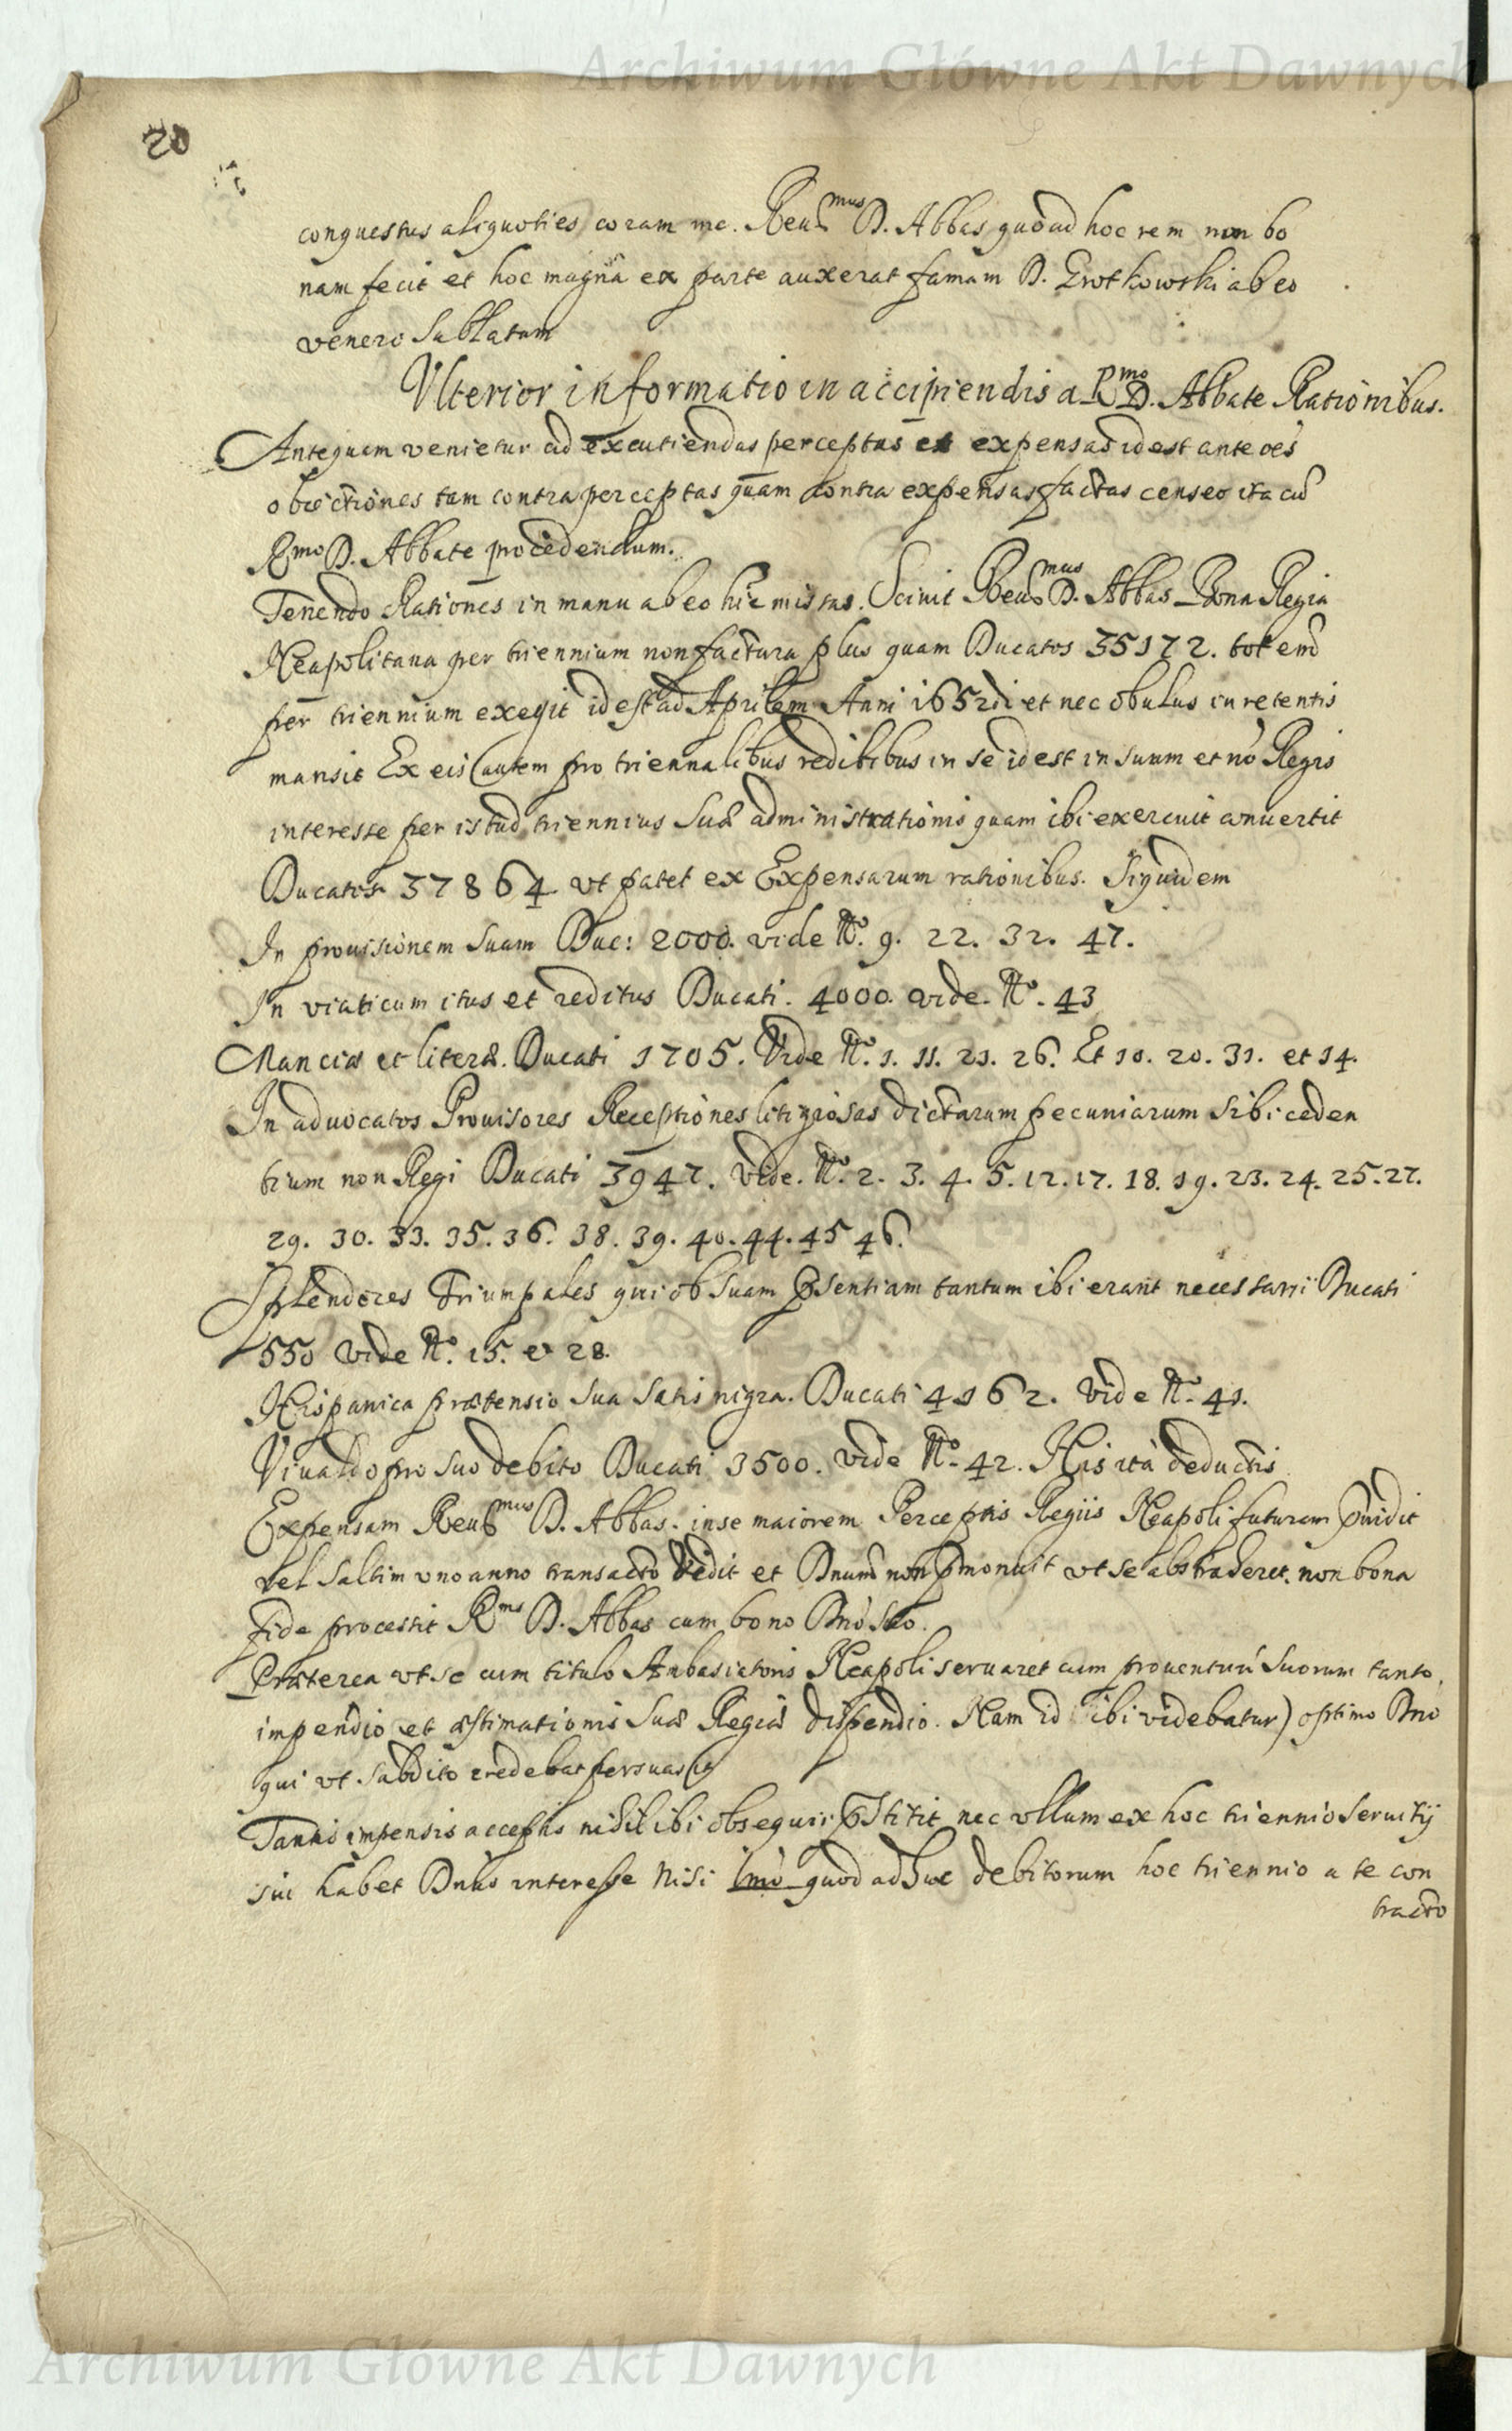 Archiwum Główne Akt Dawnych
20
conquestus aliquoties coram me. Reuᵐᵘˢ D. Abbas quòad hoc rem non bo
nam fecit et hoc magna ex parte auxerat famam D. Grotkowski ab eo
venero sublatam
Vlterior informatio in accipiendis a Rᵐᵒ D. Abbate Rationibus.
Antequam venietur ad excutiendas perceptas et expensas id est ante oẽs
obiectiones tam contra perceptas quam contra expensas factas censeo ita cũ
Rᵐᵒ D. Abbate procedendum.
Tenendo Rationes in manu ab eo huc missas. Sciuit Reuᵐᵘˢ D. Abbas Bona Regia
Neapolitana per triennium non factura plus quam Ducatos 35172. tot enĩ
per triennium exegit id est ad Aprilem Anni 1652di et nec obulus in retentis
mansit Ex eis autem pro triennalibus reditibus in se id est in suum et nõ Regis
interesse per istud triennius suæ administrationis quam ibi exercuit conuertit
Ducatos 37864 vt patet ex Expensarum rationibus. Siquidem
In prouisionem suam Duc: 2000. vide Nº. 9. 22. 32. 47.
In viaticum itus et reditus Ducati. 4000. vide. Nº. 43
Mancias et literæ. Ducati 1705. Vide Nº. 1. 11. 21. 26. Et 10. 20. 31. et 14.
In aduocatos Prouisores Receptiones litigiosas dictarum pecuniarum sibi ceden
tium non Regi Ducati 3947. Vide. Nº. 2. 3. 4. 5. 12. 17. 18. 19. 23. 24. 25. 27.
29. 30. 33. 35. 36. 38. 39. 40. 44. 45 46.
Splendores Triumpales qui ob suam p̃sentiam tantum ibi erant necessarij Ducati
550 vide Nº. 15. et 28.
Hispanica prætensio sua satis nigra. Ducati 4162. vide Nº. 41.
Viualdo pro suo debito Ducati 3500. vide Nº. 42. His ità deductis
Expensam Reuᵐᵘˢ D. Abbas. in se maiorem Perceptis Regiis Neapoli futuram p̃uidit
vel saltim vno anno transacto vidit et Dnum non p̃monuit vt se abstraheret. non bona
fide processit Rᵐˢ D. Abbas cum bono Dnõ suo.
Præterea vt se cum titulo Anbasiatoris Neapoli seruaret cum prouentuũ suorum tanto
impendio et æstimationis suæ Regiæ dispendio. Nam id ibi videbatur) optimo Dnõ
qui vt subdito credebat persuasit
Tantis impensis acceptis nihil ibi obsequii p̃stitit nec vllum ex hoc triennio seruitij
sui habet Dnus interesse nisi Imo quod adhuc debitorum hoc triennio a te con
tracto
Archiwum Główne Akt Dawnych